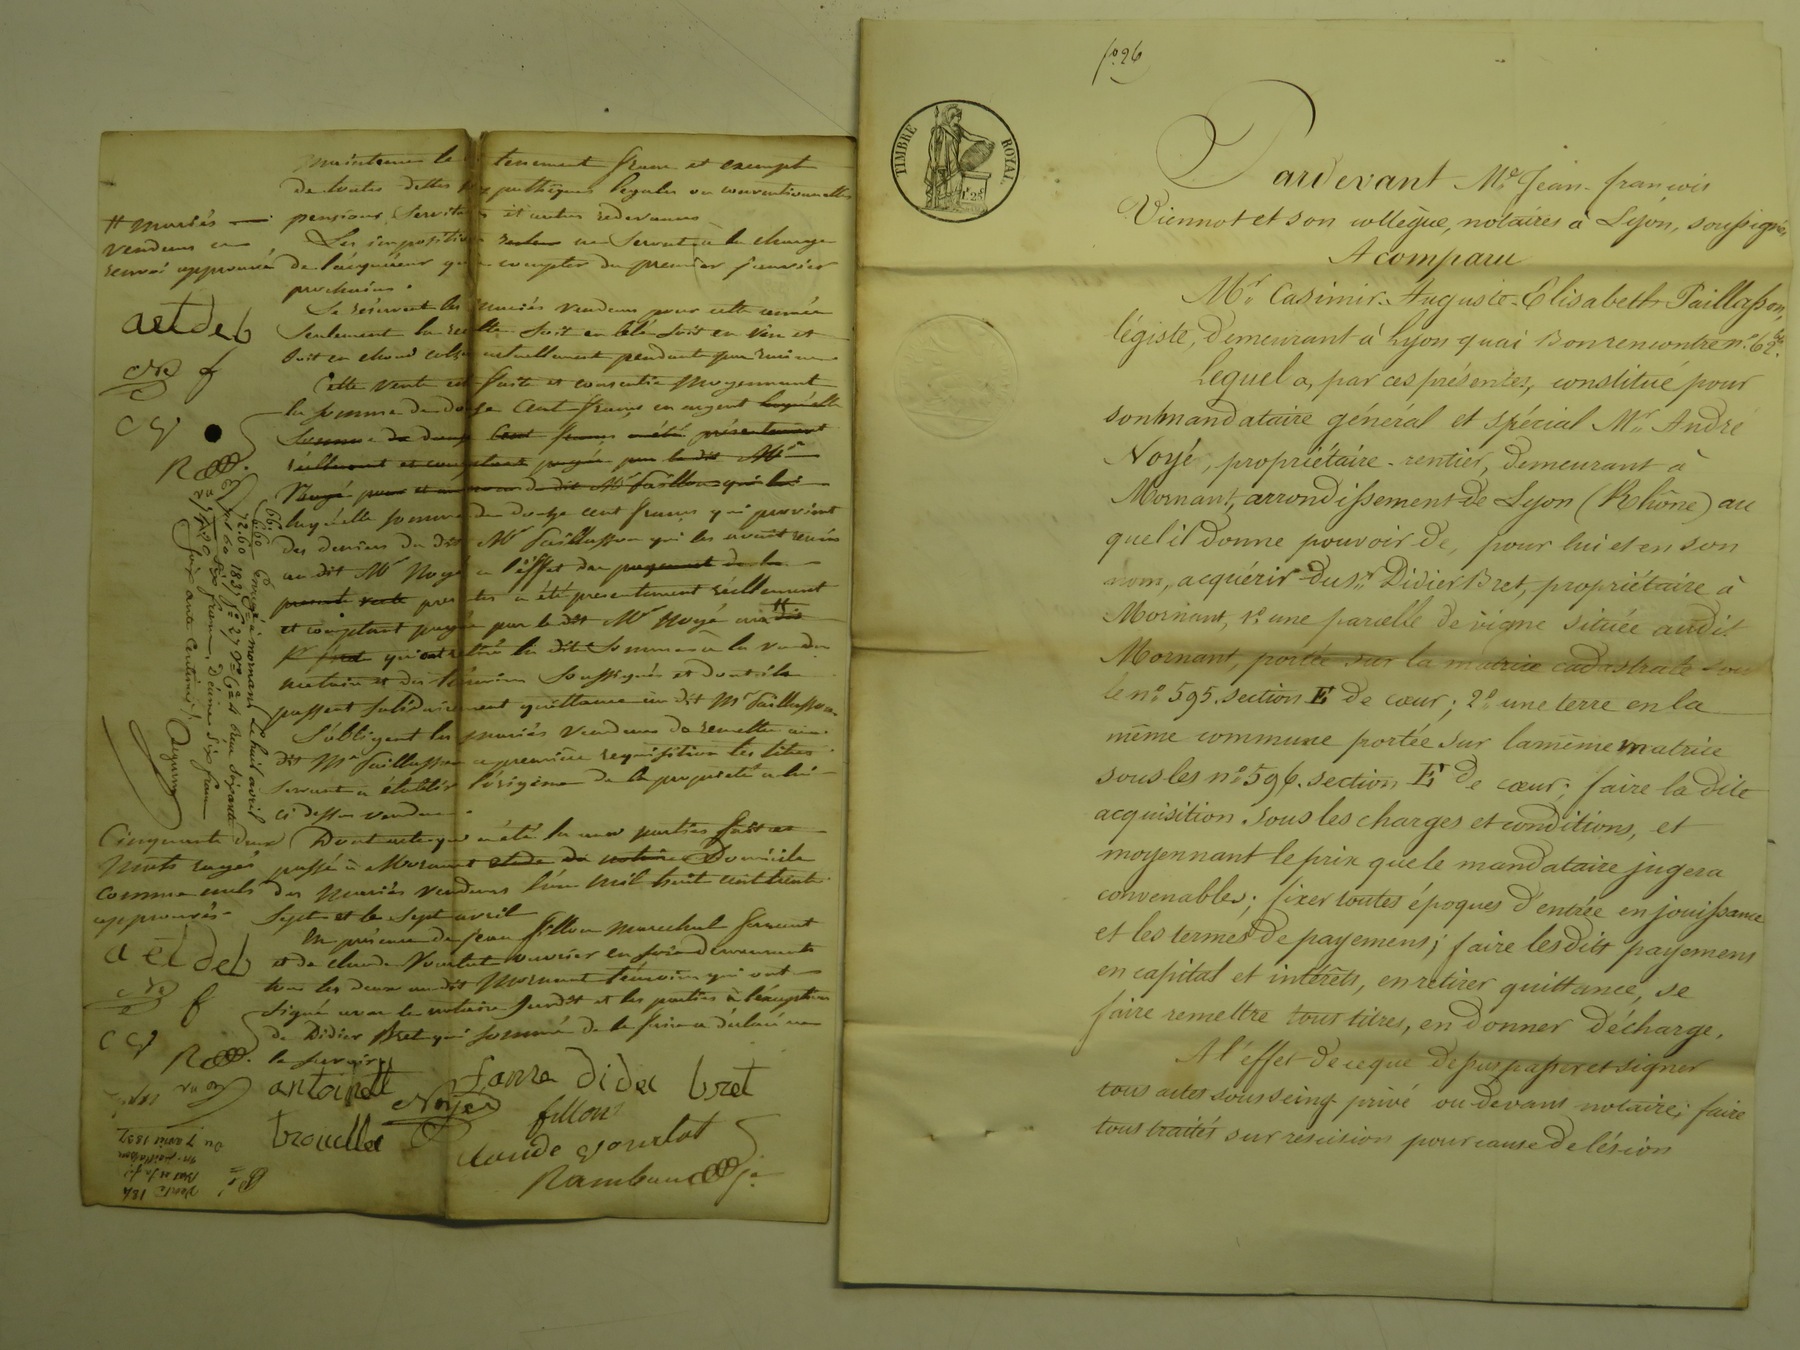 maintenue le tenement franc et exempt
de toutes dettes hypothèques legales ou conventionnelles
pensions, servitudes et autres redevances
Les impositions seront à la charge
de l'acquéreur qu'à compter du premier janvier
prochain.
Se réservent les mariés vendeurs pour cette année
seulement la recolte soit en blé soit en vin et
Cette vente est faite et consentie moyennant
la somme de douze cent francs en argent laquelle
somme de douze cent francs a été présentement
réellement et comptant payée par le dit Mr
Noyé pour et au nom du dit Mr Paillasson qui lui
laquelle somme de douze cent francs qui provient
des deniers du dit Mr Paillasson qui les avait remis
au dit Mr Noyé à l'effet du payement de la
presente vente presentes a été presentement réellement
et comptant payée par le dit Mr Noyé aux dits #
qui ont retiré la dite somme à la vue du
notaire et des témoins soussignés et dont ils
passent solidairement quittance au dit Mr Paillasson.
S'obligent les mariés vendeurs de remettre au
dit Mr Paillasson a première requisition les titres
servant à établir l'origine de la propriété à lui
ci dessus vendue.
Dont acte qui a été lu aux parties fait et
passé à Mornant etude du notaire Domicile
des mariés vendeurs l'an mil huit cent trente
sept et le sept avril
En présence de Jean fillon marechal ferrant
et de claude Vourlat ouvrier en soie demeurants
tous les deux au dit Mornant témoins qui ont
signé avec le notaire susdit et les parties à l'exception
de Didier Bret qui sommé de le faire a déclaré ne
le savoir
# mariés
vendeurs en
renvoi approuvé
aet deb
f
C Y
R
Cinquante deux
mots rayés
comme nuls
approuvés
a et deb
f
C Y
R
Enregé à mornant le huit avril
1837 fo 27
six francs, décime six francs
soixante centimes.
66.
6.60
72.60
antoinett fama didei bret
trouillet Noyé
fillon
claude vourlat
Rambaud
Vente 184
du 7 avril 1837
fo. 26
TIMBRE ROYAL
1f. 25c
Pardevant Me. Jean-françois
Viennot et son collègue, notaires à Lyon, soussignés,
A comparu
Mr. Casimir-Auguste-Elisabeth Paillasson,
légiste, demeurant à Lyon quai Bonrencontre no. 62.
Lequel a, par ces présentes, constitué pour
son mandataire général et spécial Mr. André
Noyé, propriétaire-rentier, demeurant à
Mornant, arrondissement de Lyon (Rhône) au
quel il donne pouvoir de, pour lui et en son
nom, acquérir du sr. Didier Bret, propriétaire à
Mornant, 1o. une parcelle de vigne située audit
Mornant, portée sur la matrice cadastrale sous
le no. 595. section E de cœur; 2o. une terre en la
même commune portée sur la même matrice
sous les no. 596. section E de cœur; faire la dite
acquisition sous les charges et conditions, et
moyennant le prix que le mandataire jugera
convenables; fixer toutes époques d'entrée en jouissance
et les termes de payemens; faire lesdits payemens
en capital et intérêts, en retirer quittance, se
faire remettre tous titres, en donner décharge.
A l'effet de ce que dessus passer et signer
tous actes sous seing privé ou devant notaire; faire
tous traités sur rescision pour cause de lésion